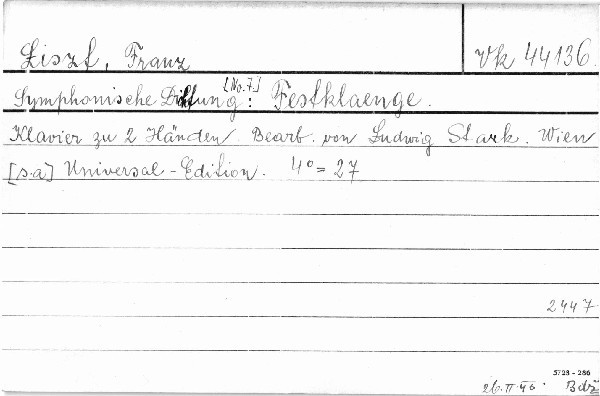 Liszt, Franz Vk 44136.
Symphonische Dichtung [No. 7.]: Festklaenge.
Klavier zu 2 Händen. Bearb. von Ludwig Stark. Wien
[s.a] Universal-Edition. 4° = 27
2447
5723 - 286
26. II. 46. Bdz